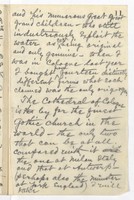 11
and his numerous great great
grand children – who still
industriously exploit the
water as being original
and only genuine. When I
was in Cologne last year
I bought fourteen distinct
different kinds that each
claimed was the only original.
The Cathedral of Cologne
is the by far the finest
Gothic church in the
world – the only two
that can be at all
compared with it is
the one at Milan Italy
and that at
perhaps also the minster
at York England. I will